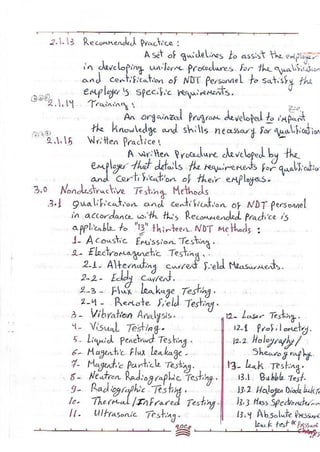 2.1.13 Recommended Practice :
A set of guidelines to assist the employer
in developing uniform procedures for the qualification
and certification of NDT personnel to satisfy the
employer's specific requirements.
2.1.14 Training :
An organized program developed to impart
the knowledge and skills necessary for qualification
2.1.15 Written Practice :
A written procedure developed by the
employer that details the requirements for qualification
and certification of their employees.
3.0 Nondestructive Testing Methods
3.1 qualification and certification of NDT personnel
in accordance with this Recommended Practice is
applicable to "13" thirteen NDT methods :
1- Acoustic Emission Testing.
2- Electromagnetic Testing.
2-1. Alternating current field Measurements.
2-2- Eddy Current.
2-3- Flux leakage Testing.
2-4- Remote field Testing.
3- Vibration Analysis.
4- Visual Testing.
5- Liquid Penetrant Testing.
6- Magnetic Flux leakage.
7- Magnetic Particle Testing.
8- Neutron Radiographic Testing.
9- Radiographic Testing.
10- Thermal/Infrared Testing.
11. Ultrasonic Testing.
12- Laser Testing.
12.1 Profilometry.
12.2 Holography/
Shearography.
13- leak Testing.
13.1 Bubble Test.
13.2 Halogen Diode leak Te
13.3 Mass Spectrometer
13.4 Absolute Pressure
leak test